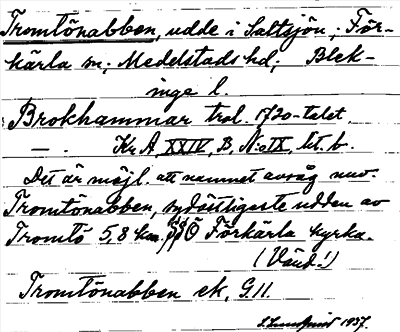 Tromtönabben, udde i Saltsjön; För-
kärla sn; Medelstads hd; Blek-
inge l.
Brokhammar trol. 1720-talet.
— . Kr A, XXIV, B, N:o IX, lit. b.
Det är möjl. att namnet avsåg nuv.
Tromtönabben, sydöstligaste udden av
Tromtö 5,8 km. SSÖ Förkärla kyrka.
(Vänd!)
Tromtönabben ek. G.11.
Lundqvist 1937.